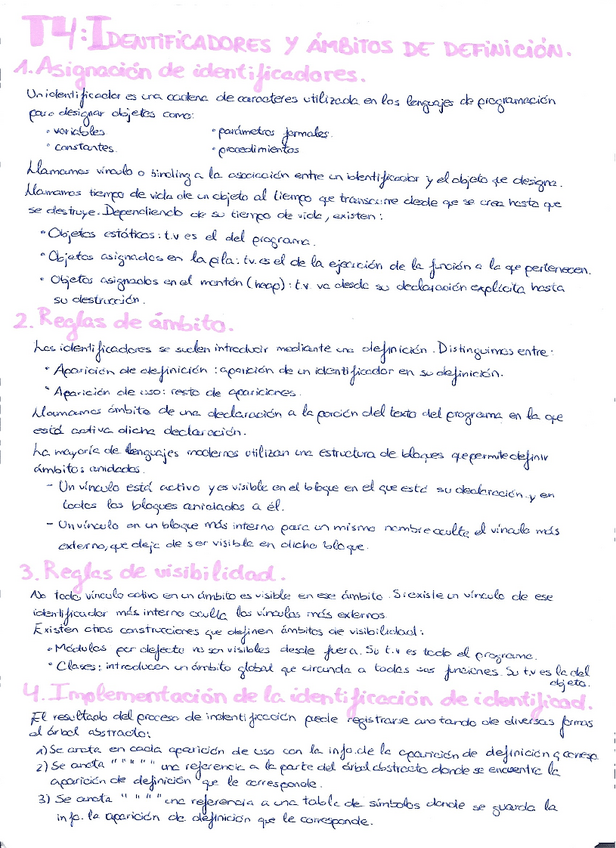 T4: IDENTIFICADORES Y ÁMBITOS DE DEFINICIÓN.
1. Asignación de identificadores.
Un identificador es una cadena de caracteres utilizada en los lenguajes de programación
para designar objetos como:
• variables • parámetros formales.
• constantes. • procedimientos
Llamamos vínculo o binding a la asociación entre un identificador y el objeto que designa.
Llamamos tiempo de vida de un objeto al tiempo que transcurre desde que se crea hasta que
se destruye. Dependiendo de su tiempo de vida, existen:
• Objetos estáticos: t.v es el del programa.
• Objetos asignados en la pila: t.v. es el de la ejecución de la función a la que pertenecen.
• Objetos asignados en el montón (heap): t.v. va desde su declaración explícita hasta
su destrucción.
2. Reglas de ámbito.
Los identificadores se suelen introducir mediante una definición. Distinguimos entre:
• Aparición de definición: aparición de un identificador en su definición.
• Aparición de uso: resto de apariciones.
Llamamos ámbito de una declaración a la porción del texto del programa en la que
está activa dicha declaración.
La mayoría de lenguajes modernos utilizan una estructura de bloques que permite definir
ámbitos anidados.
- Un vínculo está activo y es visible en el bloque en el que está su declaración y en
todos los bloques anidados a él.
- Un vínculo en un bloque más interno para un mismo nombre oculta el vínculo más
externo, que deja de ser visible en dicho bloque.
3. Reglas de visibilidad.
No todo vínculo activo en un ámbito es visible en ese ámbito. Si existe un vínculo de ese
identificador más interno oculta los vínculos más externos.
Existen otras construcciones que definen ámbitos de visibilidad:
• Módulos por defecto no son visibles desde fuera. Su t.v es todo el programa.
• Clases: introducen un ámbito global que circunda a todas sus funciones. Su tv es la del
objeto.
4. Implementación de la identificación de identificad.
El resultado del proceso de indentificación puede registrarse anotando de diversas formas
al árbol abstracto:
1) Se anota en cada aparición de uso con la info. de la aparición de definición q corresp.
2) Se anota " " " " una referencia a la parte del árbol abstracto donde se encuentre la
aparición de definición que le corresponde.
3) Se anota " " " " una referencia a una tabla de símbolos donde se guarda la
info. la aparición de definición que le corresponde.